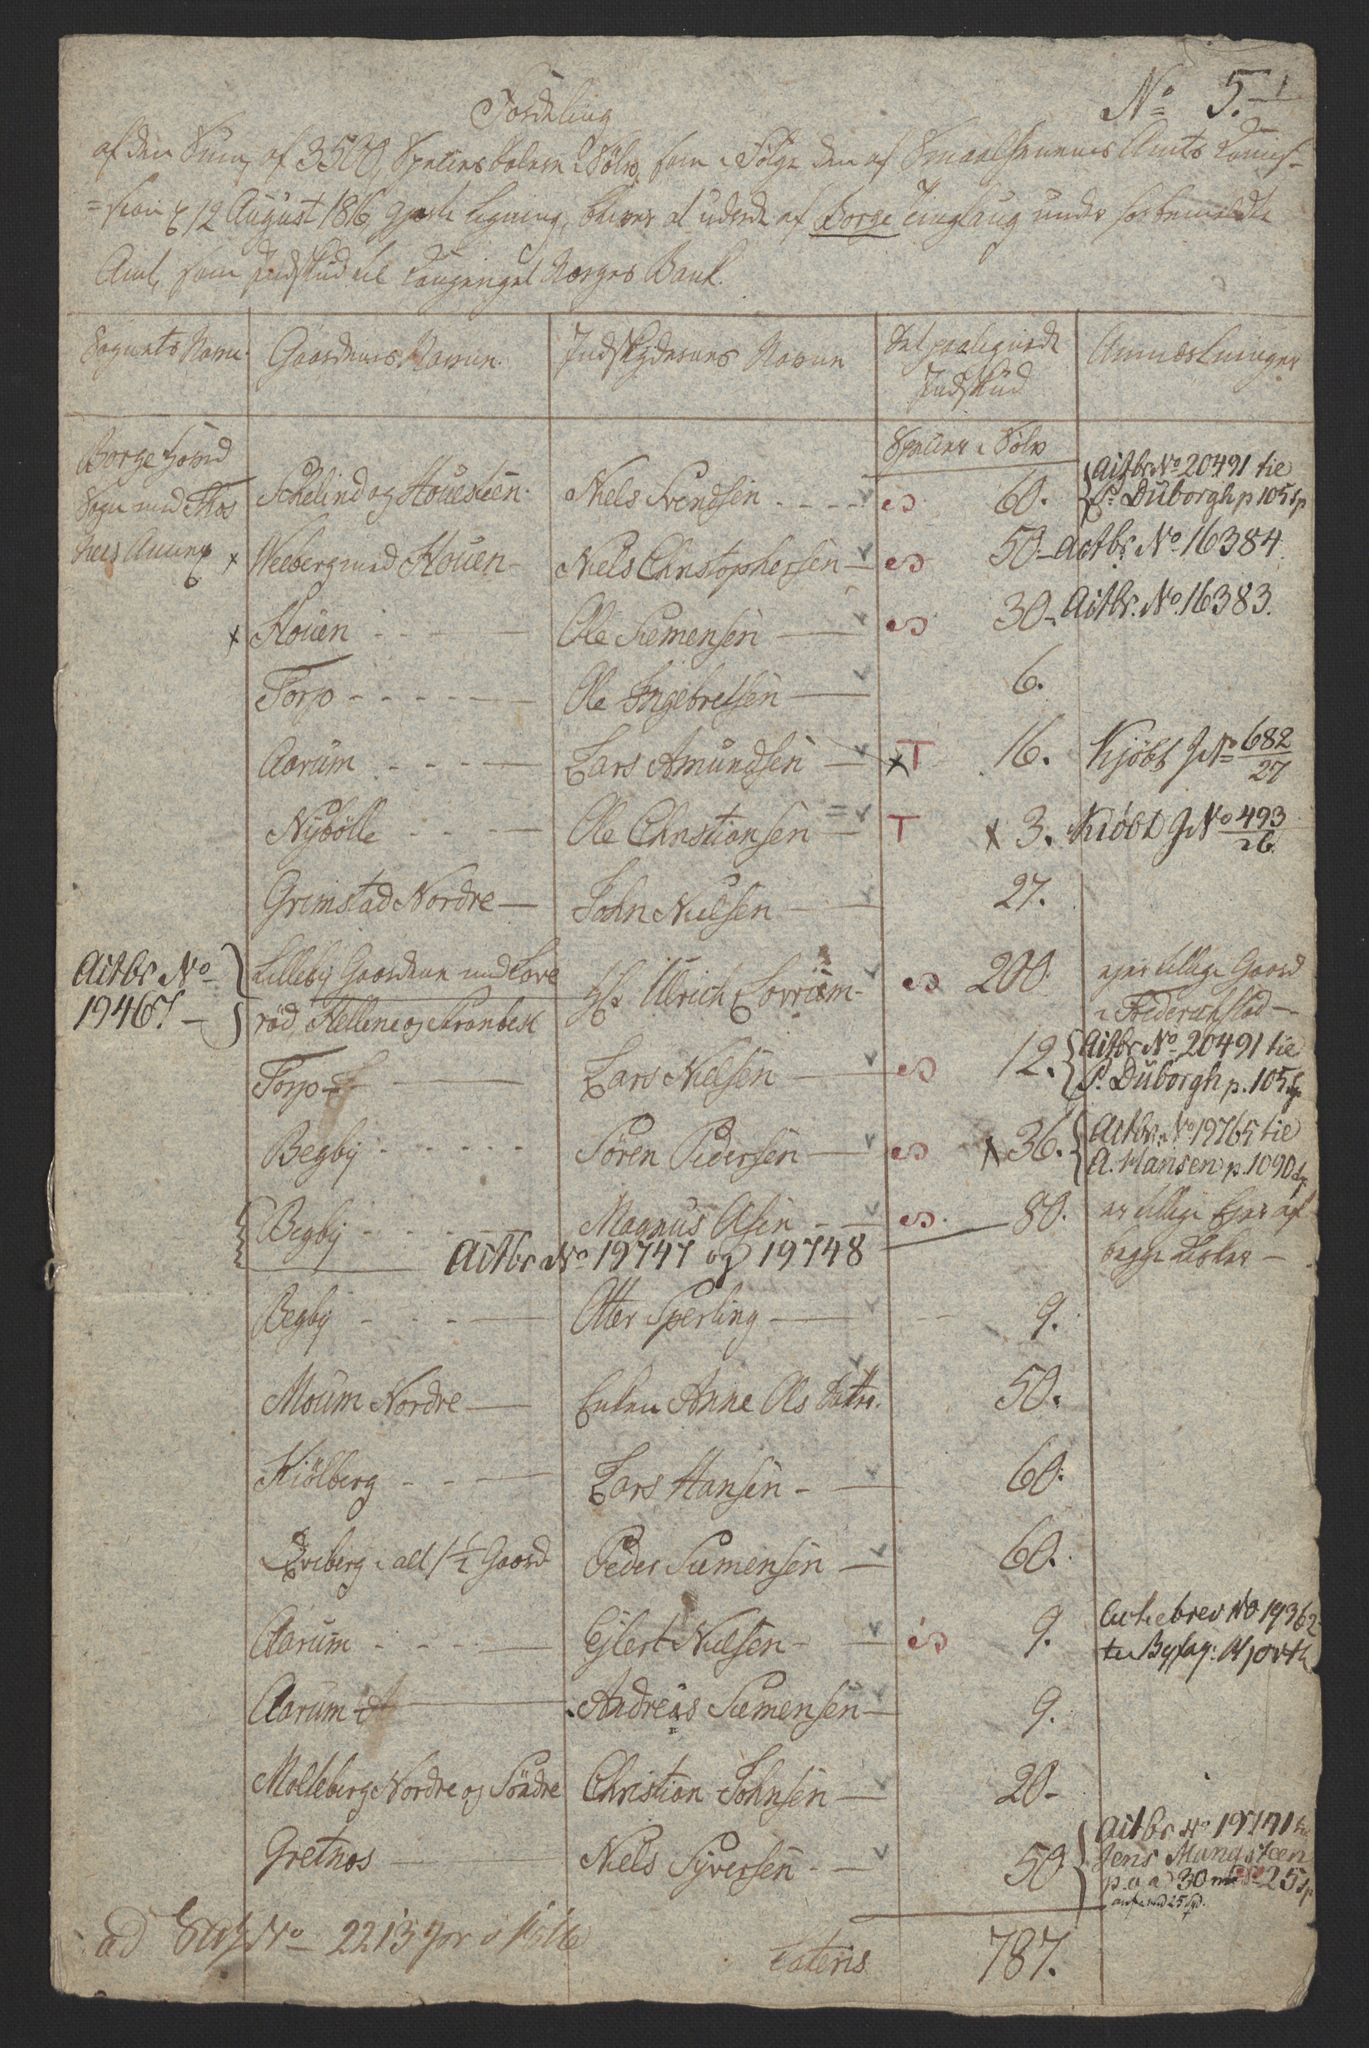 No 5. 1
Fordeling
af den Sum af 3500 Species daler i Sølv, som i Følge den af Smaalehnenes Amts Comis-
=sion d 12 August 1816, gjorte Ligning, bliver at udrede af Borge Tinglaug under forbemeldte
Amt, som Indskud til Kongeriget Norges Bank.
Sognets Navn. Gaardenes Navn. Indskydernes Navn Det paalignede Indskud Anmærkninger
Species i Sølv
Borge Hoved
Sogn med
Annex
Schelin og Houesteen. Niels Svendsen - - - - 60. Actbr No 20491 til
P. Duborgh p. 105 sp
x Weeberg med Houen - Niels Christophersen - 50 - Actbr. No. 16384
x Houen - - - Ole Siemensen - 30 - Actbr. No. 16383.
Torp - - - - Ole Ingebretsen - 6.
Aarum - - - - Lars Amundsen - xT 16. Kjøbt JNo 682/27
Nybölle - - - Ole Christiansen - T x 3. Kiöbt JNo 493/26
Grimstad Nordre - John Nielsen - 27.
Actbr No
19467. -
Lilleby Gaardene med Love
rød, Hellene og
Hr Ulrich Lorviem - 200 ejer tillige Gaard
i Frederikstad -
Torp - Lars Nielsen - 12. Actbr No 20491 til
P. Duborgh p. 105 sp
Begby - - - - - Sören Pedersen - x 36. Actbr. No 19765 til
A. Hansen p. 1090 sp
Begby - - - Magnus Olsen - - 80. er tillige Ejer af
begge
Actbr No 19747 og 19748
Begby - - - - Otter Sperling - 9.
Moum Nordre - Enken Anne Ols Datter. 50.
Kiölberg - - - Lars Hansen - 60.
i alt 1 1/2 Gaard Peder Siemensen - 60.
Aarum - - - Ejlert Nielsen - 9. Actiebrev No 19362
til Byfog: Hjorth
Aarum - Andreas Siemensen - 9.
Molleberg Nordre og Söndre Christian Johnsen - 20 -
Gretnes - Niels Syversen - - 50 Actbr No til
Jens Mangsteen
p. a. a 30 25 sp
ad No 2213 for
Lateris 787.